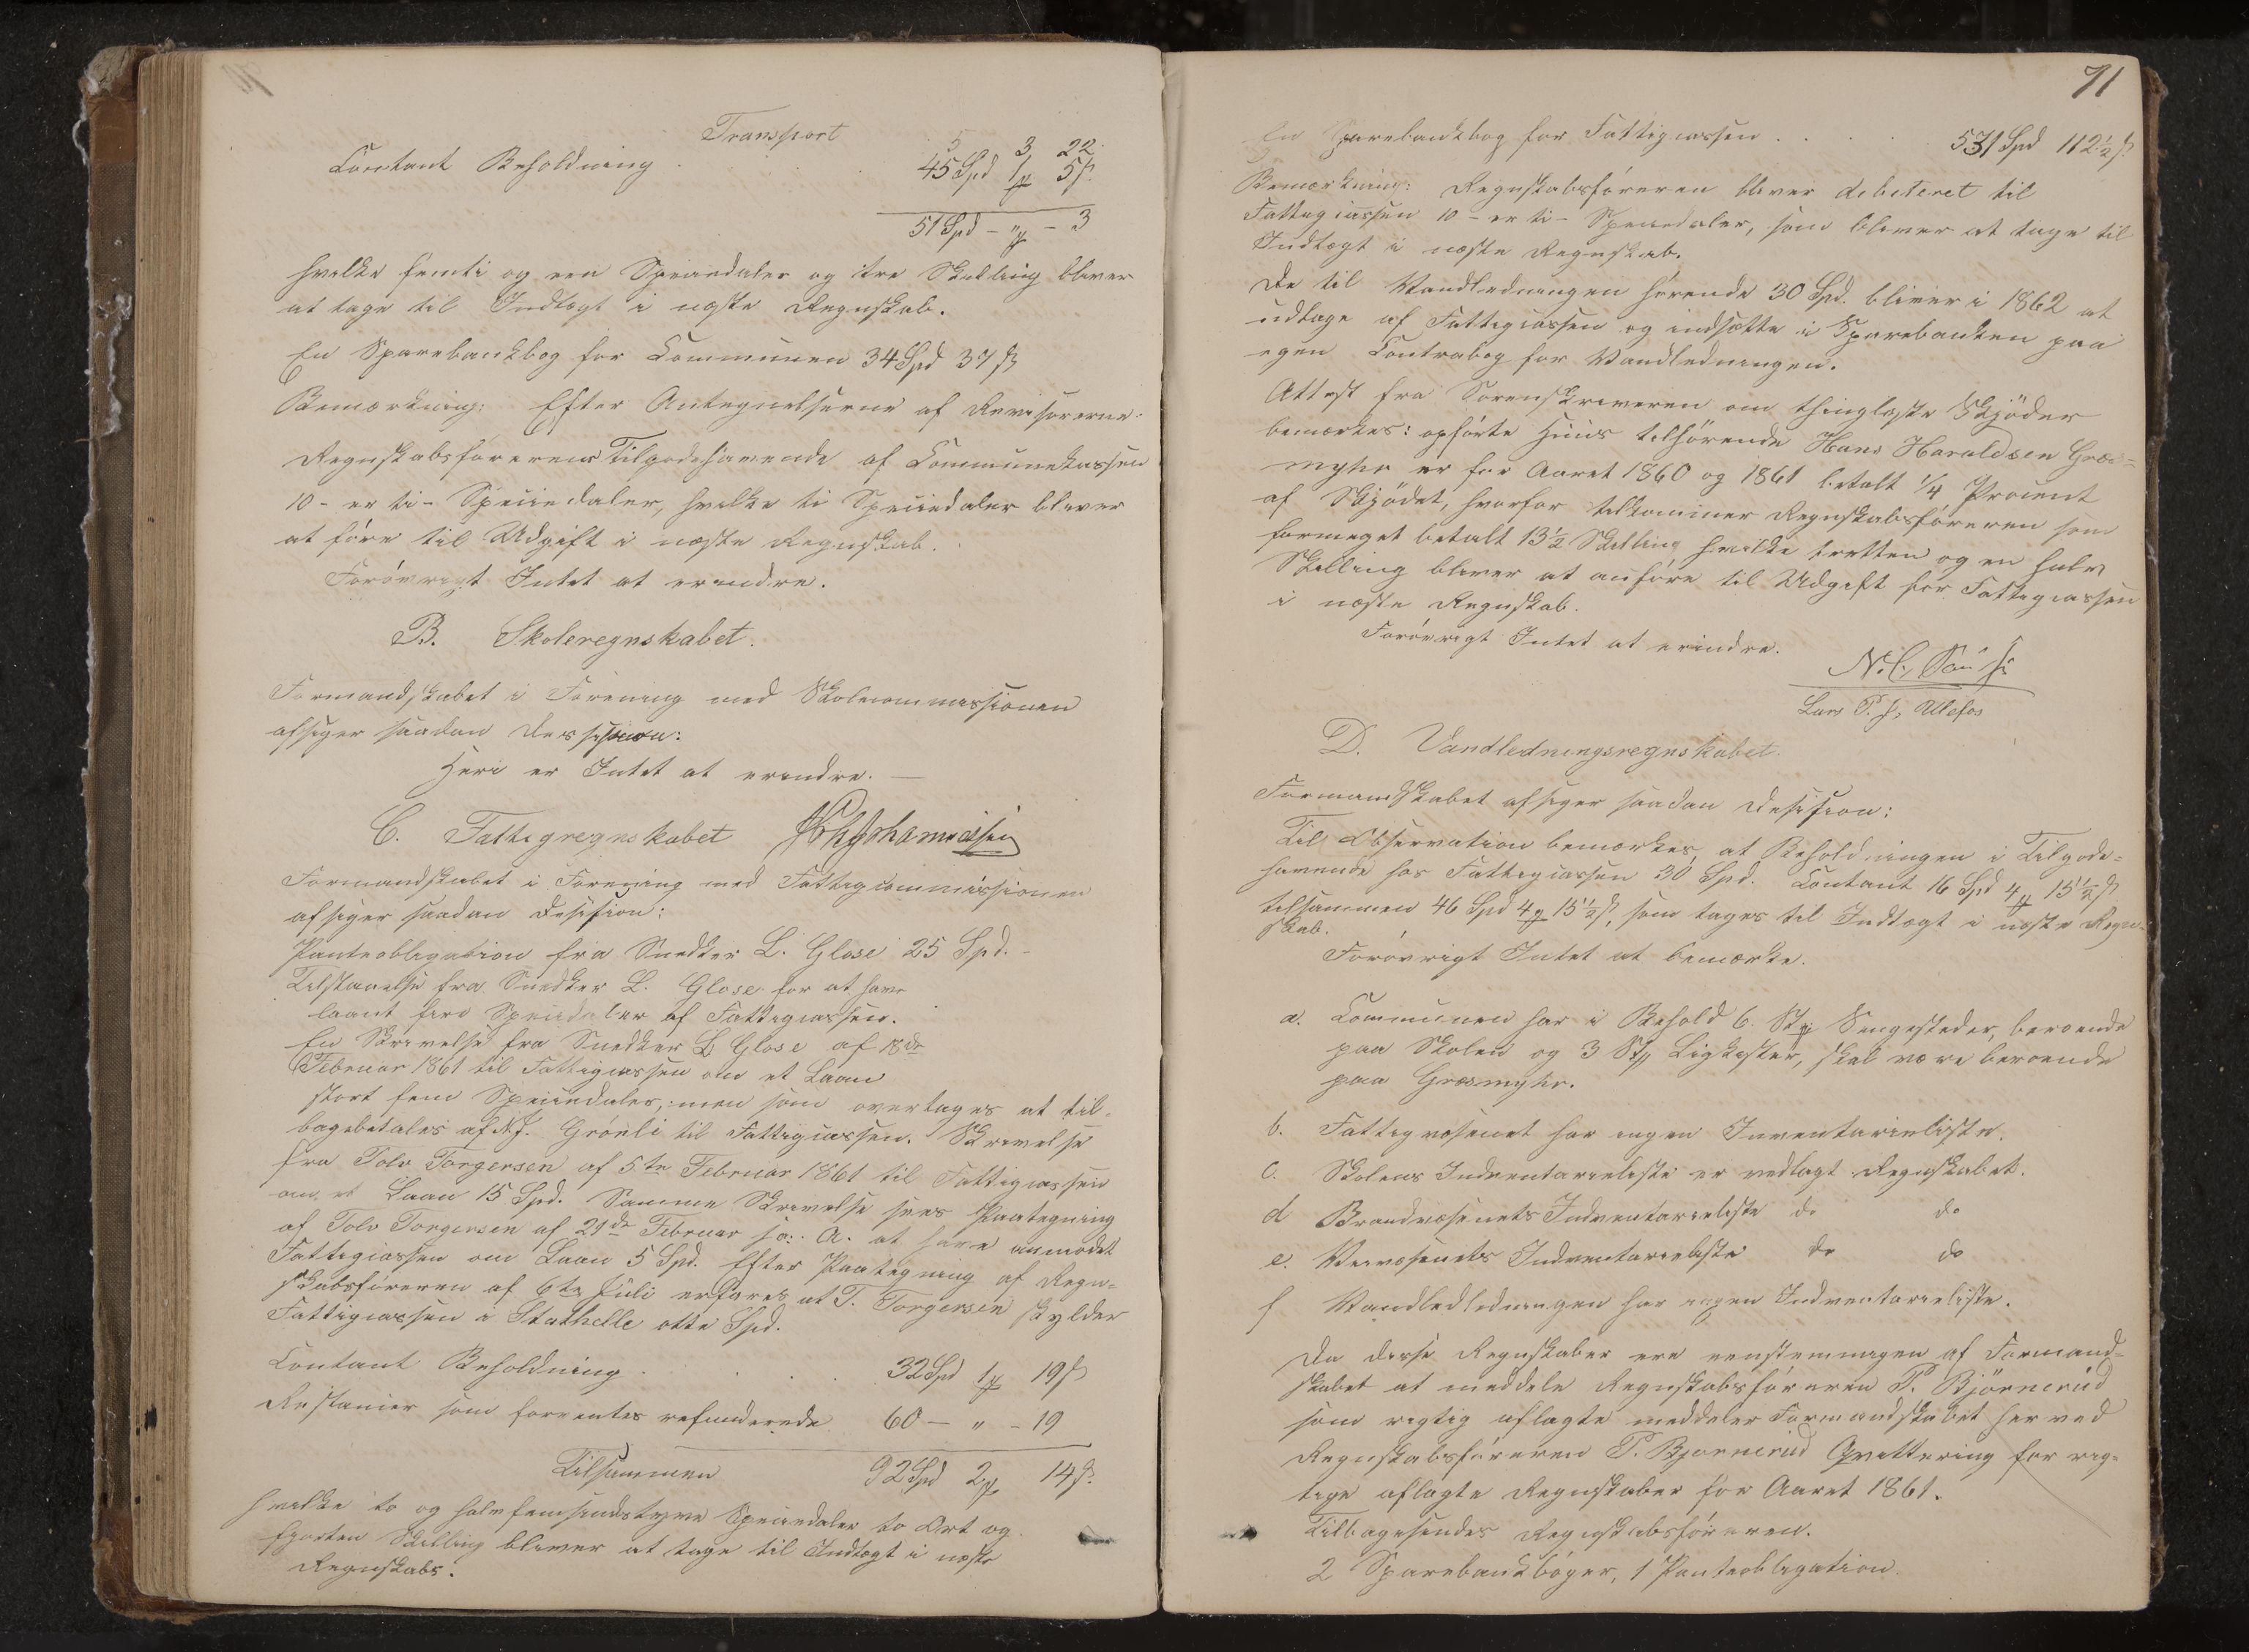 Transport 5 3 22
Contant Beholdning . . . 45 Spd 1 ₰ 5 ß.
51 Spd - " - 3
hvilke femti og een Speciedaler og tre Skilling bliver
at tage til Indtægt i næste Regnskab.
En Sparebankbog for Communen 34 Spd 37 ß
Bemærkning: Efter Antegnelserne af Revisorerne:
Regnskabsførerens Tilgodehavende af Communekassen
10 - er ti - Speciedaler, hvilke ti Speciedaler bliver
at føre til Udgift i næste Regnskab.
Forøvrigt Intet at erindre.
B. Skoleregnskabet.
Formandskabet i Forening med Skolecommissionen
afsiger saadan Dessision:
Heri er Intet at erindre. —
C. Fattigregnskabet
Formandskabet i Forening med Fattigcommissionen
afsiger saadan Desision:
Panteobligation fra Snedker L. Glose 25 Spd. -
Tilstaaelse fra Snedker L. Glose for at have
laant fire Speciedaler af Fattigcassen.
En Skrivelse fra Snedker L Glose af 18de
Februar 1861 til Fattigcassen om et Laan
stort fem Speciedaler, men som overtages at til-
bagebetales af N.J. Grønli til Fattigcassen. Skrivelse
fra Tolv Torgersen af 5te Februar 1861 til Fattigcassen
om et Laan 15 Spd. Samme Skrivelse sees Paategning
af Tolv Torgersen af 21de Februar s: A. at have anmodet
Fattigcassen om Laan 5 Spd. Efter Paategning af Regn=
skabsføreren af 6te Juli erfares at T. Torgersen skylder
Fattigcassen i Stathelle otte Spd.
Contant Beholdning . . . . 32 Spd 1 ₰ 19 ß
Restancer som forventes refunderede 60 - " - 19
Tilsammen 92 Spd 2 ₰ 14 ß.
hvilke to og halvfemsindstyve Speciedaler to Ort og
fjorten Skilling bliver at tage til Indtægt i næste
Regnskabs.
71
En Sparebankbog for Fattigcassen . . . 531 Spd 112 ½ ß.
Bemærkning: Regnskabsføreren bliver debiteret til
Fattigcassen 10 - er ti - Speciedaler, som bliver at tage til
Indtægt i næste Regnskab.
De til Vandledningen hørende 30 Spd. bliver i 1862 at
udtage af Fattigcassen og indsætte i Sparebanken paa
egen Contrabog for Vandledningen.
Attest fra Sorenskriveren om thinglæste Skjøder
bemærkes: opførte Huus tilhørende Hans Haraldsen Græs=
myhr er for Aaret 1860 og 1861 betalt 1/4 Procent
af Skjødet, hvorfor tilkommer Regnskabsføreren som
formeget betalt 13 ½ Skilling hvilke tretten og en halv
Skilling bliver at anføre til Udgift for Fattigcassen
i næste Regnskab.
Forøvrigt Intet at erindre.
Lars P. S. Ullefos
D. Vandledningsregnskabet.
Formandskabet afsiger saadan Desision:
Til Observation bemærkes, at Beholdningen i Tilgode=
havende hos Fattigcassen 30 Spd. Contant 16 Spd 4 ₰ 15 ½ ß
tilsammen 46 Spd 4 ₰ 15 ½ ß, som tages til Indtægt i næste Regn-
skab.
Forøvrigt Intet at bemærke.
a. Communen har i Behold 6 Stk Sengesteder, beroende
paa Skolen og 3 Stk Ligkister, skal være beroende
paa Græsmyhr.
b. Fattigvæsenet har ingen Inventarieliste.
c. Skolens Indventarieliste er vedlagt Regnskabet.
d Brandvæsenets Indventarieliste do do
e. Veivæsenets Indventarieliste do do
f Vandledledningen har ingen Indventarieliste.
Da disse Regnskaber ere eenstemmigen af Formand=
skabet at meddele Regnskabsføreren P. Bjørnerud
som rigtig aflagte meddeler Formandskabet herved
Regnskabsføreren P. Bjørnerud Qvittering for rig=
tige aflagte Regnskaber for Aaret 1861.
Tilbagesendes Regnskabsføreren.
2 Sparebankbøger, 1 Panteobligation